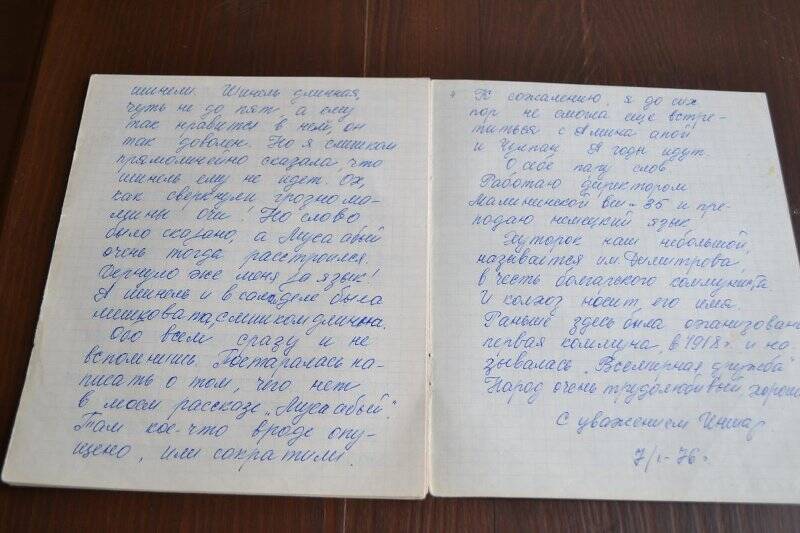 шинели. Шинель длинная,
чуть не до пят, а ему
так нравится в ней, он
так доволен. Но я слишком
прямолинейно сказала, что
шинель ему не идет. Ох,
как сверкнули грозно ма-
мины очи! Но слово
было сказано, а Муса абый
очень тогда расстроился.
Дернуло же меня за язык!
А шинель и в самом деле была
мешковата, слишком длинна.
Обо всем сразу и не
вспомнишь. Постаралась на-
писать о том, чего нет
в моем рассказе „Муса абый".
Там кое-что вроде опу-
щено, или сократили.
К сожалению, я до сих
пор не смогла еще встре-
титься с Амина апой
и Чулпан. А годы идут.
О себе пару слов.
Работаю директором
Малининской вш-35 и пре-
подаю немецкий язык
Хуторок наш небольшой,
называется им. Димитрова,
в честь болгарского коммуниста.
И колхоз носит его имя.
Раньше здесь была организована
первая коммуна, в 1918 г. и на-
зывалась „Всемирная дружба"
Народ очень трудолюбивый, хороший
С уважением
76 г.